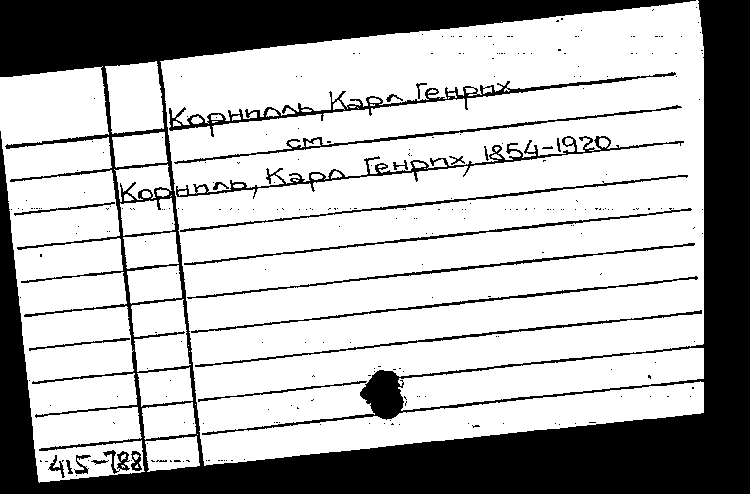 Корнилль, Карл Генрих
см.
Корниль, Карл Генрих, 1854-1920.
415-788